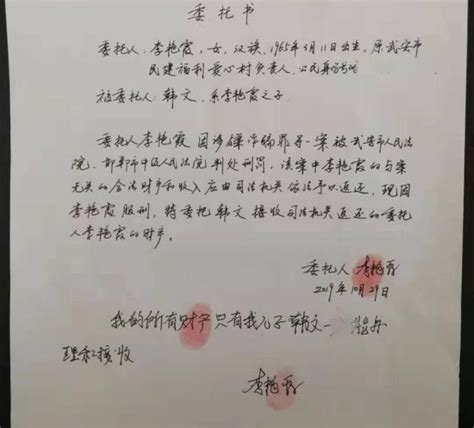 委托书
委托人：李艳霞，女，汉族，1965年3月11日出生，原武安市
民建福利爱心村负责人、公民身份号码
被委托人：韩文，系李艳霞之子
委托人李艳霞因涉嫌诈骗罪等一案被武安市人民法
院、邯郸市中级人民法院判处刑罚，该案中李艳霞的与案
无关的合法财产和收入应由司法机关依法予以返还，现因
李艳霞服刑，特委托韩文接收司法机关返还的委托
人李艳霞的财产。
委托人：李艳霞
2019年10月29日
我的所有财产只有我儿子韩文一
理和接收
李艳霞